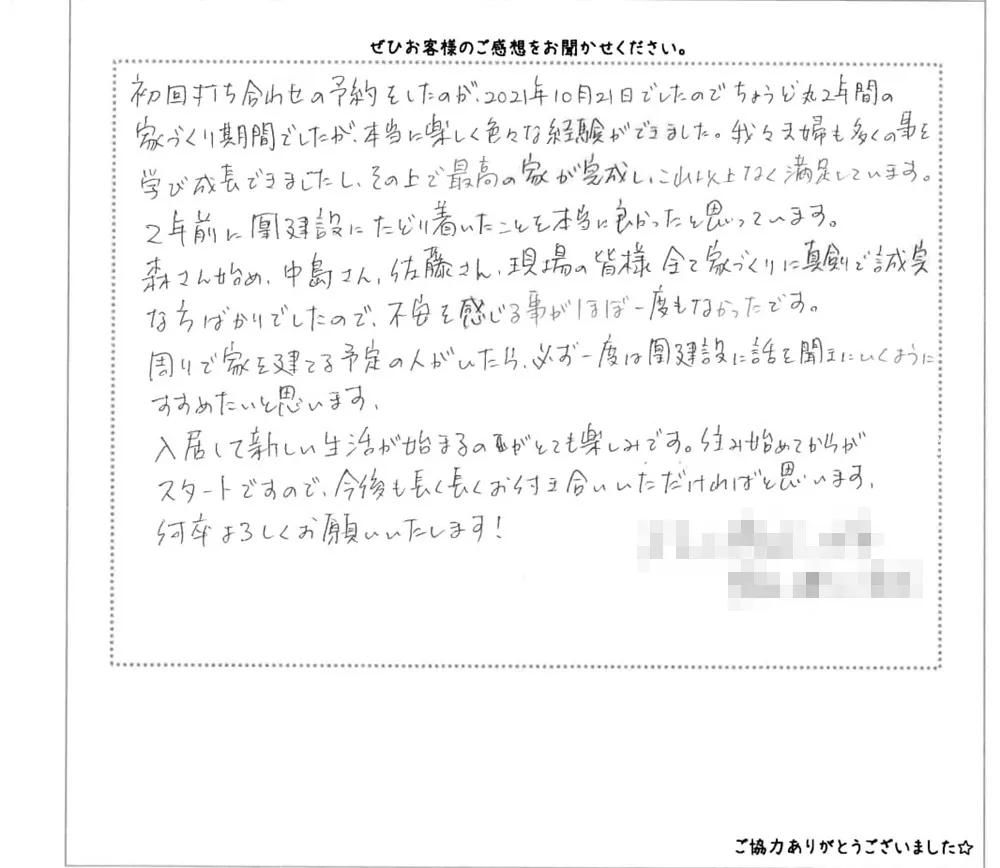 ぜひお客様のご感想をお聞かせください。
初回打ち合わせの予約をしたのが、2021年10月21日でしたのでちょうど丸2年間の
家づくり期間でしたが、本当に楽しく色々な経験ができました。我々夫婦も多くの事を
学び成長できましたし、その上で最高の家が完成し、これ以上なく満足しています。
2年前に圍建設にたどり着いたことを本当に良かったと思っています。
森さん始め、中島さん、佐藤さん、現場の皆様全て家づくりに真剣で誠実
な方ばかりでしたので、不安を感じる事がほぼ一度もなかったです。
周りで家を建てる予定の人がいたら、必ず一度は圍建設に話を聞きにいくように
すすめたいと思います、
入居して新しい生活が始まるのがとても楽しみです。住み始めてからが
スタートですので、今後も長く長くお付き合いいただければと思います、
何卒よろしくお願いいたします!
ご協力ありがとうございました☆